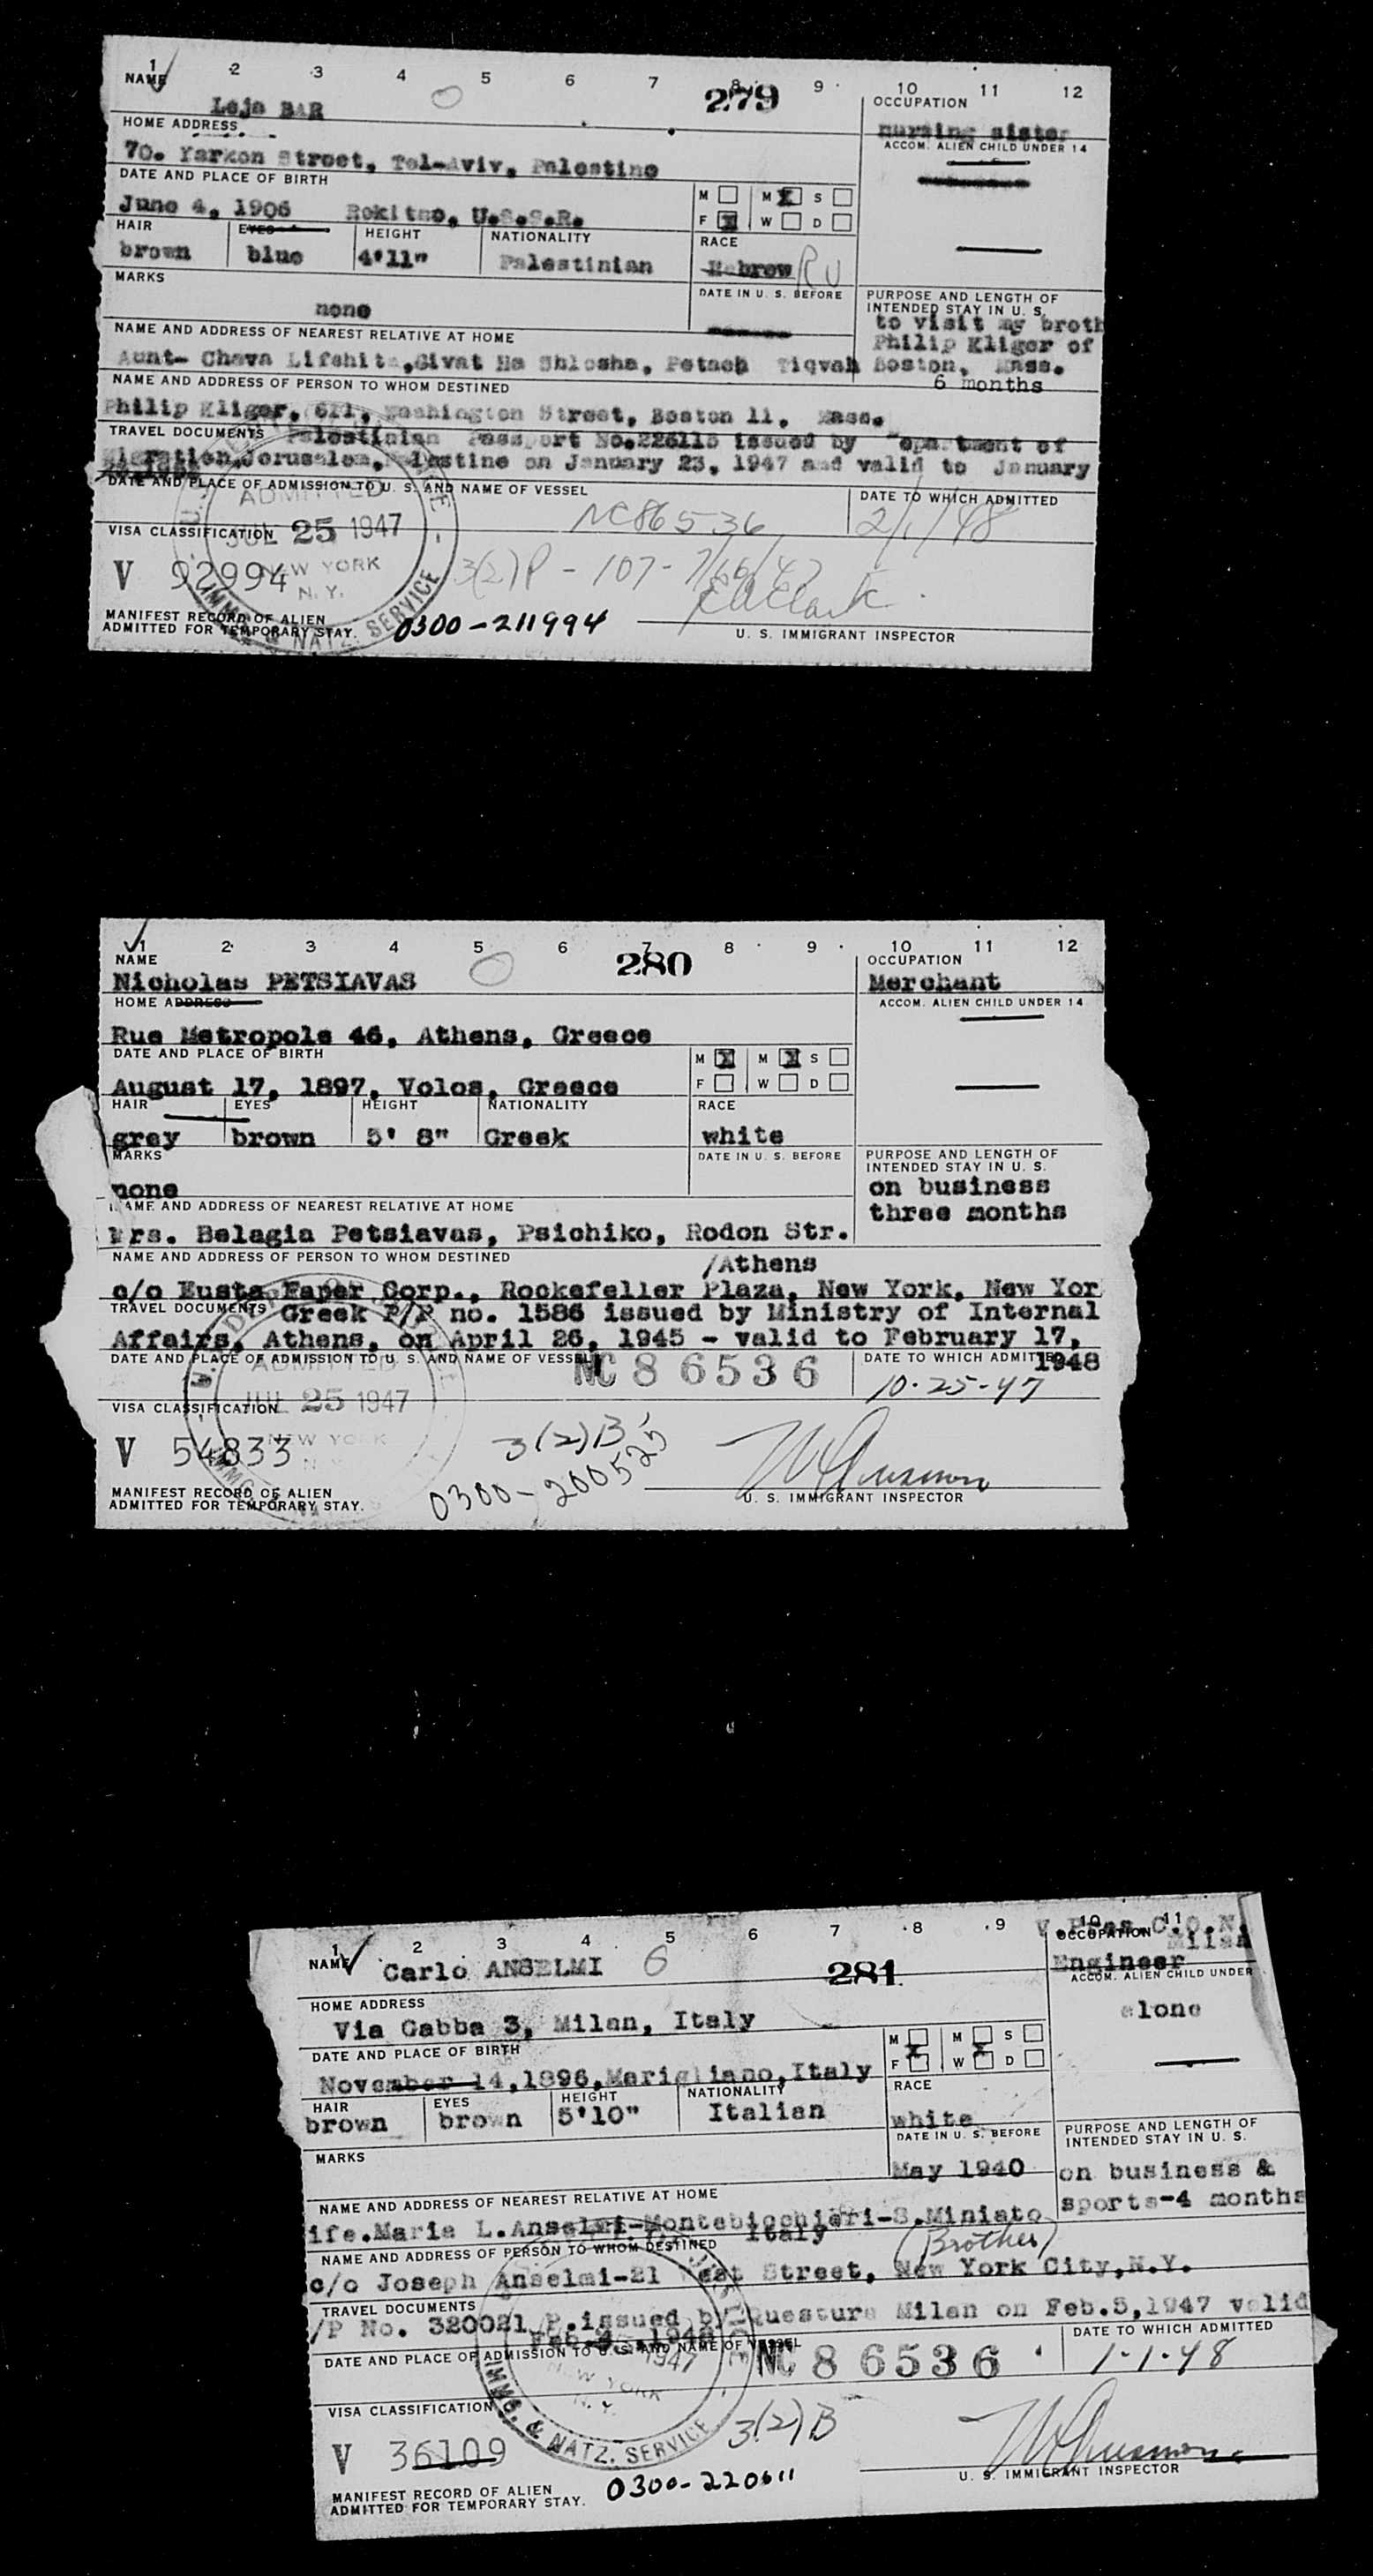 1 2 3 4 5 6 7 8 9 10 11 12
NAME 279 OCCUPATION
Leja BAR nursing sister
HOME ADDRESS ACCOM. ALIEN CHILD UNDER 14
70. Yarkon Street, Tel-Aviv, Palestine
DATE AND PLACE OF BIRTH M M X S
June 4, 1906 Rokitno, U.S.S.R. F X W D
HAIR EYES HEIGHT NATIONALITY RACE
brown blue 4'11" Palestinian Hebrew RU
MARKS DATE IN U. S. BEFORE PURPOSE AND LENGTH OF
INTENDED STAY IN U. S.
none to visit my broth
NAME AND ADDRESS OF NEAREST RELATIVE AT HOME Philip Kliger of
Aunt- Chava Lifshitz,Givat Ha Shlosha, Petach Tiqvah Boston, Mass.
NAME AND ADDRESS OF PERSON TO WHOM DESTINED 6 months
Philip Kliger, 611, Washington Street, Boston 11, Mass.
TRAVEL DOCUMENTS Palestinian Passport No.226115 issued by Department of
Migration,Jerusalem,Palestine on January 23, 1947 and valid to January
DATE AND PLACE OF ADMISSION TO U. S. AND NAME OF VESSEL DATE TO WHICH ADMITTED
ADMITTED NC86536 2/1/48
VISA CLASSIFICATION JUL 25 1947
V 92994 NEW YORK N.Y. 3(2)P - 107-
MANIFEST RECORD OF ALIEN
ADMITTED FOR TEMPORARY STAY. IMMG. & NATZ. SERVICE 0300-211994 U. S. IMMIGRANT INSPECTOR
1 2 3 4 5 6 7 8 9 10 11 12
NAME 280 OCCUPATION
Nicholas PETSIAVAS Merchant
HOME ADDRESS ACCOM. ALIEN CHILD UNDER 14
Rue Metropole 46, Athens, Greece
DATE AND PLACE OF BIRTH M X M X S
August 17, 1897, Volos, Greece F W D
HAIR EYES HEIGHT NATIONALITY RACE
grey brown 5' 8" Greek white
MARKS DATE IN U. S. BEFORE PURPOSE AND LENGTH OF
INTENDED STAY IN U. S.
none on business
NAME AND ADDRESS OF NEAREST RELATIVE AT HOME three months
Mrs. Belagia Petsiavas, Psichiko, Rodon Str.
NAME AND ADDRESS OF PERSON TO WHOM DESTINED /Athens
c/o Eusta Paper Corp., Rockefeller Plaza, New York, New Yor
TRAVEL DOCUMENTS Greek P/P no. 1586 issued by Ministry of Internal
Affairs, Athens, on April 26, 1945 - valid to February 17,
DATE AND PLACE OF ADMISSION TO U. S. AND NAME OF VESSEL DATE TO WHICH ADMITTED 1948
ADMITTED NC 86536 10-25-47
VISA CLASSIFICATION JUL 25 1947
V 54833 NEW YORK 3(2)B
MANIFEST RECORD OF ALIEN
ADMITTED FOR TEMPORARY STAY. 0300-200525 U. S. IMMIGRANT INSPECTOR
1 2 3 4 5 6 7 8 9 10 11
NAME 281 OCCUPATION
Carlo ANSELMI Engineer
HOME ADDRESS ACCOM. ALIEN CHILD UNDER
Via Gabba 3, Milan, Italy alone
DATE AND PLACE OF BIRTH M M S
November 14,1896,Marigliano,Italy F X W X D
HAIR EYES HEIGHT NATIONALITY RACE
brown brown 5'10" Italian white
MARKS DATE IN U. S. BEFORE PURPOSE AND LENGTH OF
INTENDED STAY IN U. S.
May 1940 on business &
NAME AND ADDRESS OF NEAREST RELATIVE AT HOME sports-4 months
ife.Maria L.Anselmi-Montebicchieri-S.Miniato
Italy
NAME AND ADDRESS OF PERSON TO WHOM DESTINED (Brother)
c/o Joseph Anselmi-21 West Street, New York City,N.Y.
TRAVEL DOCUMENTS
/P No. 320021 P.issued by Questura Milan on Feb.5,1947 valid
DATE AND PLACE OF ADMISSION TO U. S. AND NAME OF VESSEL DATE TO WHICH ADMITTED
1947 NC 86536 1-1-48
VISA CLASSIFICATION NEW YORK N.Y.
V 36109 IMMG. & NATZ. SERVICE 3(2)B
MANIFEST RECORD OF ALIEN
ADMITTED FOR TEMPORARY STAY. 0300-220611 U. S. IMMIGRANT INSPECTOR